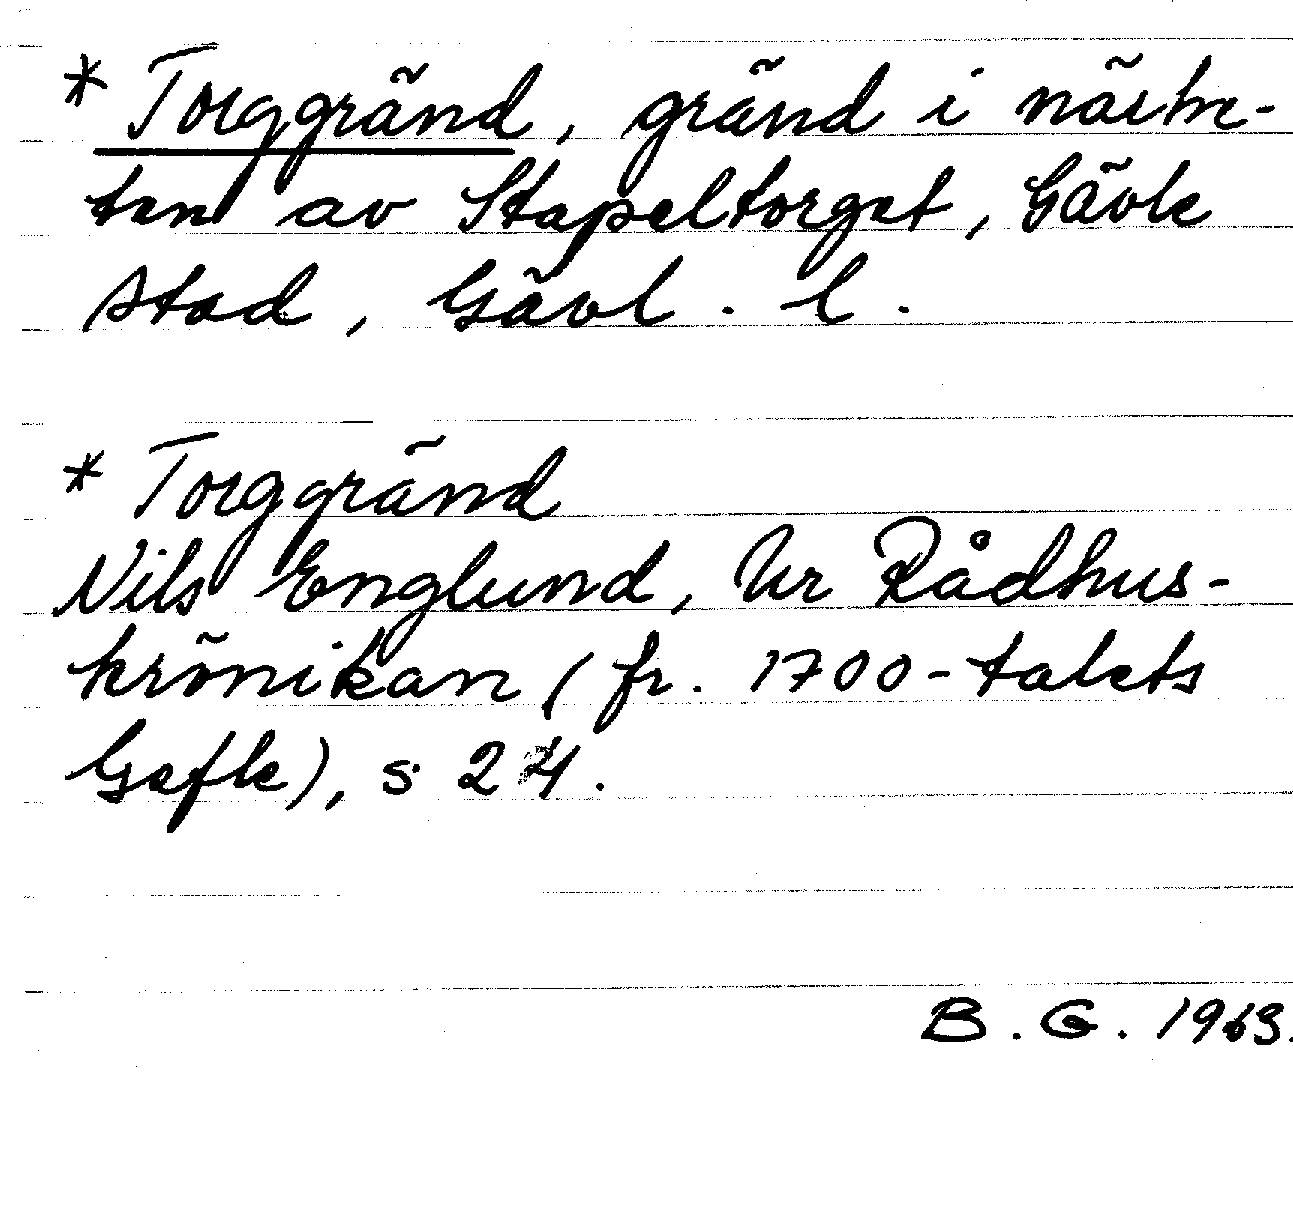 * Torggränd, gränd i närhe-
ten av Stapeltorget, Gävle
stad, Gävl. l.
* Torggränd
Nils Englund, Ur Rådhus-
krönikan (fr. 1700-talets
Gefle), s 24.
B. G. 1963.